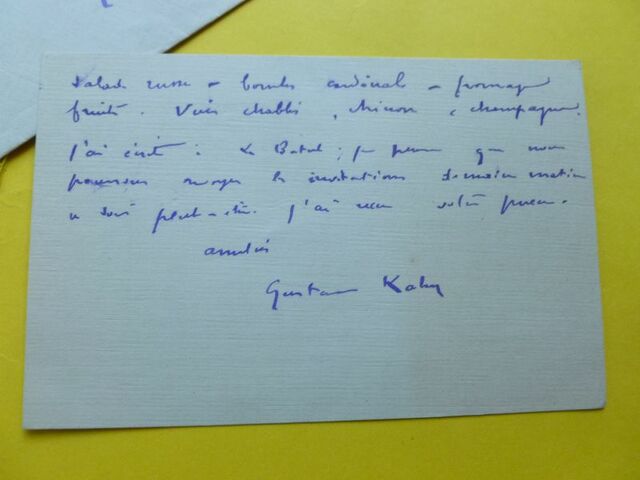 Salade russe - bombe cardinale - fromage
fruits. Vins chablis, chinon, champagne.
J'ai écrit à Le Batut; je pense que nous
pourrons envoyer les invitations demain matin
ce soir peut-être. J'ai reçu votre pneu.
amitiés
Gustave Kahn